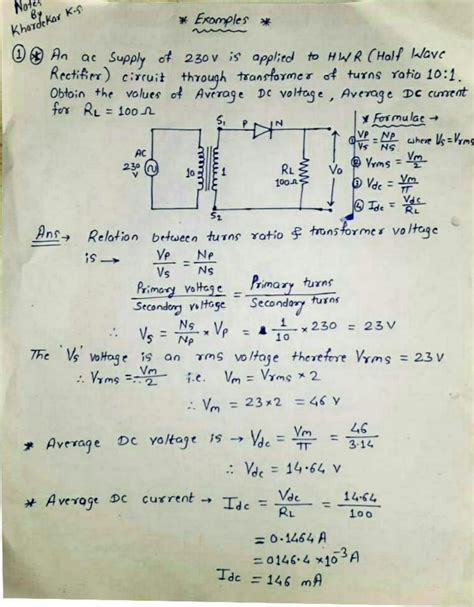 Notes
By
Khardekar K.S.
* Examples *
① * An ac supply of 230V is applied to HWR (Half Wave
Rectifier) circuit through transformer of turns ratio 10:1.
Obtain the values of Average DC voltage, Average DC current
for RL = 100 Ω
* Formulae →
① Vp/Vs = Np/Ns where Vs = Vrms
② Vrms = Vm/2
③ Vdc = Vm/π
④ Idc = Vdc/RL
S1
P N
AC
230
V
10 1
RL
100Ω
Vo
S2
Ans → Relation between turns ratio & transformer voltage
is → Vp/Vs = Np/Ns
Primary voltage/Secondary voltage = Primary turns/Secondary turns
∴ Vs = Ns/Np × Vp = 1/10 × 230 = 23V
The 'Vs' voltage is an rms voltage therefore Vrms = 23V
∴ Vrms = Vm/2 i.e. Vm = Vrms × 2
∴ Vm = 23×2 = 46 V
* Average DC voltage is → Vdc = Vm/π = 46/3.14
∴ Vdc = 14.64 V
* Average DC current → Idc = Vdc/RL = 14.64/100
= 0.1464 A
= 0146.4 ×10⁻³ A
Idc = 146 mA